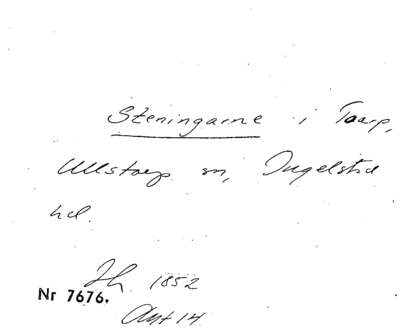 Steningarne i Taarp,
Ullstorp sn, Ingelstad
hd.
Jh. 1852
Nr 7676.
Akt 14